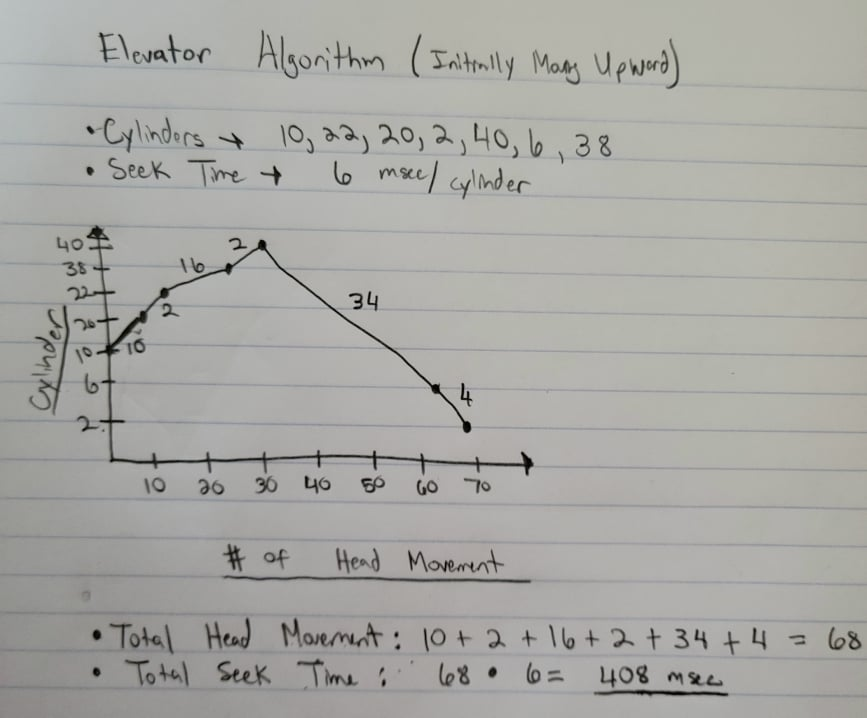 Elevator Algorithm (Initially Moving Upward)
• Cylinders → 10, 22, 20, 2, 40, 6, 38
• Seek Time → 6 msec/cylinder
40
38
22
20
10
6
2
Cylinder
10
2
16
2
34
4
10 20 30 40 50 60 70
# of Head Movement
• Total Head Movement: 10 + 2 + 16 + 2 + 34 + 4 = 68
• Total Seek Time: 68 • 6 = 408 msec